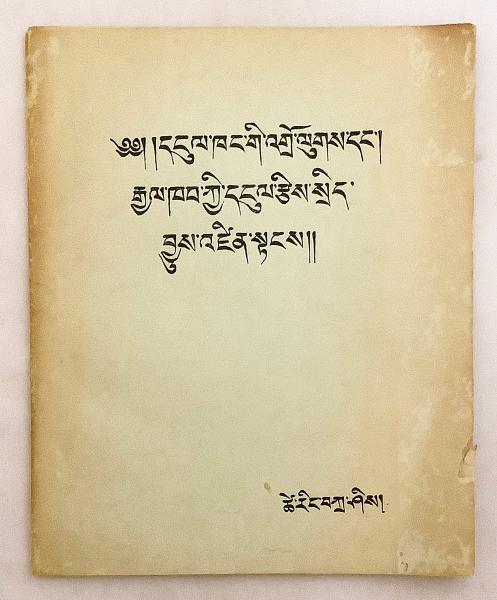 ༄༅། །དངུལ་ཁང་གི་འགྲོ་ལུགས་དང་།
རྒྱལ་ཁབ་ཀྱི་དངུལ་རྩིས་སྲིད་
བྱུས་འཛིན་སྟངས།།
ཚེ་རིང་བཀྲ་ཤིས།